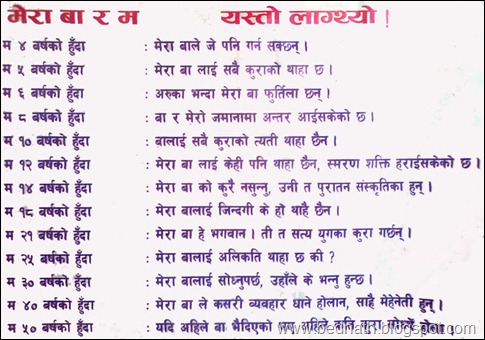 मेरा बा र म यस्तो लाग्थ्यो !
म ४ बर्षको हुँदा : मेरा बाले जे पनि गर्न सक्छन् ।
म ५ बर्षको हुँदा : मेरा बा लाई सबै कुराको थाहा छ ।
म ६ बर्षको हुँदा : अरुका भन्दा मेरा बा फुर्तिला छन् ।
म ८ बर्षको हुँदा : बा र मेरो जमानामा अन्तर आईसकेको छ ।
म १० बर्षको हुँदा : बालाई सबै कुराको त्यती थाहा छैन ।
म १२ बर्षको हुँदा : मेरा बा लाई केही पनि थाहा छैन, स्मरण शक्ति हराईसकेको छ ।
म १४ बर्षको हुँदा : मेरा बा को कुरै नसुन्नु, उनी त पुरातन संस्कृतिका हुन् ।
म १८ बर्षको हुँदा : मेरा बालाई जिन्दगी के हो थाहै छैन ।
म २१ बर्षको हुँदा : मेरा बा हे भगवान । ती त सत्य युगका कुरा गर्छन् ।
म २५ बर्षको हुँदा : मेरा बालाई अलिकति थाहा छ की ?
म ३० बर्षको हुँदा : मेरा बालाई सोध्नुपर्छ, उहाँले के भन्नु हुन्छ ।
म ४० बर्षको हुँदा : मेरा बा ले कसरी व्यवहार धाने होलान, साह्रै मेहेनेती हुन् ।
म ५० बर्षको हुँदा : यदि अहिले बा भैदिएको
www.bednath.blogspot.com